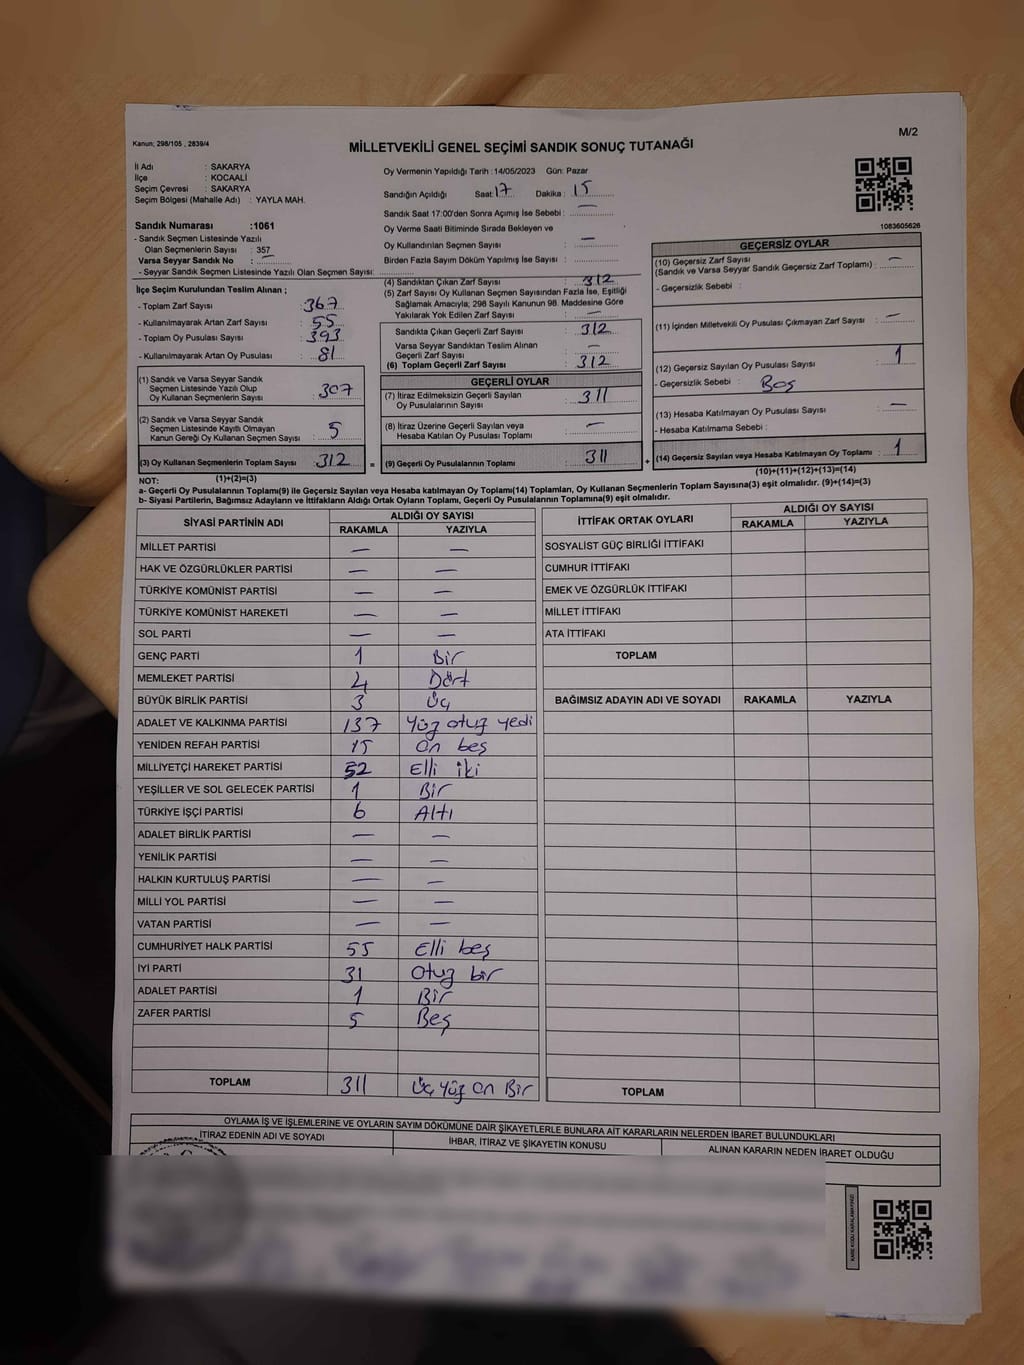 M/2
Kanun; 298/105 , 2839/4
MİLLETVEKİLİ GENEL SEÇİMİ SANDIK SONUÇ TUTANAĞI
İl Adı : SAKARYA
İlçe : KOCAALİ
Seçim Çevresi : SAKARYA
Seçim Bölgesi (Mahalle Adı) : YAYLA MAH.
Sandık Numarası :1061
- Sandık Seçmen Listesinde Yazılı
Olan Seçmenlerin Sayısı : 357
Varsa Seyyar Sandık No : —
- Seyyar Sandık Seçmen Listesinde Yazılı Olan Seçmen Sayısı:
Oy Vermenin Yapıldığı Tarih :14/05/2023 Gün: Pazar
Sandığın Açıldığı Saat: 17 Dakika : 15
Sandık Saat 17:00'den Sonra Açımış İse Sebebi : —
Oy Verme Saati Bitiminde Sırada Bekleyen ve
Oy Kullandırılan Seçmen Sayısı : —
Birden Fazla Sayım Döküm Yapılmış İse Sayısı :
1083605626
İlçe Seçim Kurulundan Teslim Alınan ;
- Toplam Zarf Sayısı : 367
- Kullanılmayarak Artan Zarf Sayısı : 55
- Toplam Oy Pusulası Sayısı : 393
- Kullanılmayarak Artan Oy Pusulası : 81
(1) Sandık ve Varsa Seyyar Sandık
Seçmen Listesinde Yazılı Olup
Oy Kullanan Seçmenlerin Sayısı : 307
(2) Sandık ve Varsa Seyyar Sandık
Seçmen Listesinde Kayıtlı Olmayan
Kanun Gereği Oy Kullanan Seçmen Sayısı : 5
(3) Oy Kullanan Seçmenlerin Toplam Sayısı 312 =
(4) Sandıktan Çıkan Zarf Sayısı : 312
(5) Zarf Sayısı Oy Kullanan Seçmen Sayısından Fazla İse, Eşitliği
Sağlamak Amacıyla; 298 Sayılı Kanunun 98. Maddesine Göre
Yakılarak Yok Edilen Zarf Sayısı : —
Sandıkta Çıkan Geçerli Zarf Sayısı : 312
Varsa Seyyar Sandıktan Teslim Alınan
Geçerli Zarf Sayısı : —
(6) Toplam Geçerli Zarf Sayısı : 312
GEÇERLİ OYLAR
(7) İtiraz Edilmeksizin Geçerli Sayılan
Oy Pusulalarının Sayısı : 311
(8) İtiraz Üzerine Geçerli Sayılan veya
Hesaba Katılan Oy Pusulası Toplamı : —
(9) Geçerli Oy Pusulalarının Toplamı : 311 +
GEÇERSİZ OYLAR
(10) Geçersiz Zarf Sayısı
(Sandık ve Varsa Seyyar Sandık Geçersiz Zarf Toplamı) : —
- Geçersizlik Sebebi :
(11) İçinden Milletvekili Oy Pusulası Çıkmayan Zarf Sayısı : —
(12) Geçersiz Sayılan Oy Pusulası Sayısı : 1
- Geçersizlik Sebebi : Boş
(13) Hesaba Katılmayan Oy Pusulası Sayısı : —
- Hesaba Katılmama Sebebi :
(14) Geçersiz Sayılan veya Hesaba Katılmayan Oy Toplamı : 1
NOT: (1)+(2)=(3)
(10)+(11)+(12)+(13)=(14)
a- Geçerli Oy Pusulalarının Toplamı(9) ile Geçersiz Sayılan veya Hesaba katılmayan Oy Toplamı(14) Toplamları, Oy Kullanan Seçmenlerin Toplam Sayısına(3) eşit olmalıdır. (9)+(14)=(3)
b- Siyasi Partilerin, Bağımsız Adayların ve İttifakların Aldığı Ortak Oyların Toplamı, Geçerli Oy Pusulalarının Toplamına(9) eşit olmalıdır.
SİYASİ PARTİNİN ADI ALDIĞI OY SAYISI
RAKAMLA YAZIYLA
MİLLET PARTİSİ — —
HAK VE ÖZGÜRLÜKLER PARTİSİ — —
TÜRKİYE KOMÜNİST PARTİSİ — —
TÜRKİYE KOMÜNİST HAREKETİ — —
SOL PARTİ — —
GENÇ PARTİ 1 Bir
MEMLEKET PARTİSİ 4 Dört
BÜYÜK BİRLİK PARTİSİ 3 Üç
ADALET VE KALKINMA PARTİSİ 137 Yüz otuz yedi
YENİDEN REFAH PARTİSİ 15 On beş
MİLLİYETÇİ HAREKET PARTİSİ 52 Elli iki
YEŞİLLER VE SOL GELECEK PARTİSİ 1 Bir
TÜRKİYE İŞÇİ PARTİSİ 6 Altı
ADALET BİRLİK PARTİSİ — —
YENİLİK PARTİSİ — —
HALKIN KURTULUŞ PARTİSİ — —
MİLLİ YOL PARTİSİ — —
VATAN PARTİSİ — —
CUMHURİYET HALK PARTİSİ 55 Elli beş
İYİ PARTİ 31 Otuz bir
ADALET PARTİSİ 1 Bir
ZAFER PARTİSİ 5 Beş
TOPLAM 311 Üç Yüz On Bir
İTTİFAK ORTAK OYLARI ALDIĞI OY SAYISI
RAKAMLA YAZIYLA
SOSYALİST GÜÇ BİRLİĞİ İTTİFAKI
CUMHUR İTTİFAKI
EMEK VE ÖZGÜRLÜK İTTİFAKI
MİLLET İTTİFAKI
ATA İTTİFAKI
TOPLAM
BAĞIMSIZ ADAYIN ADI VE SOYADI RAKAMLA YAZIYLA
TOPLAM
OYLAMA İŞ VE İŞLEMLERİNE VE OYLARIN SAYIM DÖKÜMÜNE DAİR ŞİKAYETLERLE BUNLARA AİT KARARLARIN NELERDEN İBARET BULUNDUKLARI
İTİRAZ EDENİN ADI VE SOYADI İHBAR, İTİRAZ VE ŞİKAYETİN KONUSU ALINAN KARARIN NEDEN İBARET OLDUĞU
KARE KODU KARALAMAYINIZ!